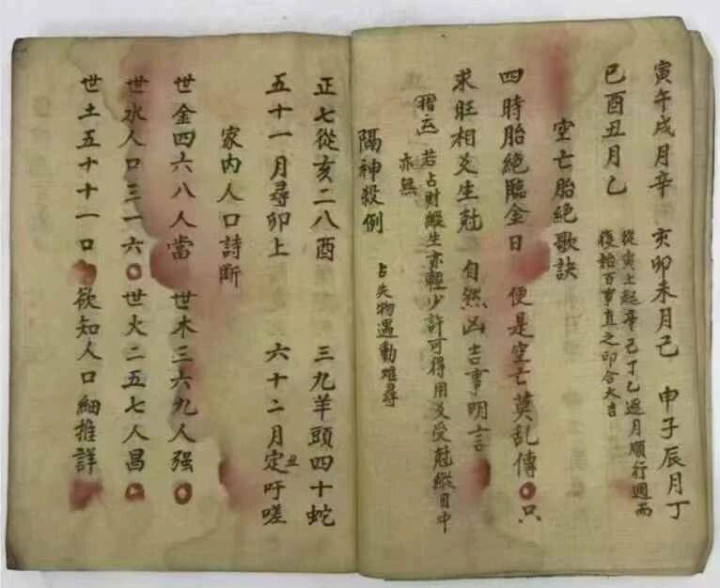 寅午戌月辛 亥卯未月己 申子辰月丁
巳酉丑月乙
從寅上起辛己丁乙逐月順行週而
復始百事直之即合大吉
空亡胎絕歌訣
四時胎絕臨金日 便是空亡莫乱傳 只
求旺相爻生尅 自然凶吉事明言
若占財縱生亦輕少許可得用爻受尅縱目中
亦無
隔神殺例 占失物遇動难尋
正七從亥二八酉 三九羊頭四十蛇
五十一月尋卯上 六十二月定丑吁嗟
家內人口詩斷
世金四六八人當 世木三六九人强
世水人口三一六 世火二五七人昌
世土五十十一口 欲知人口細推詳